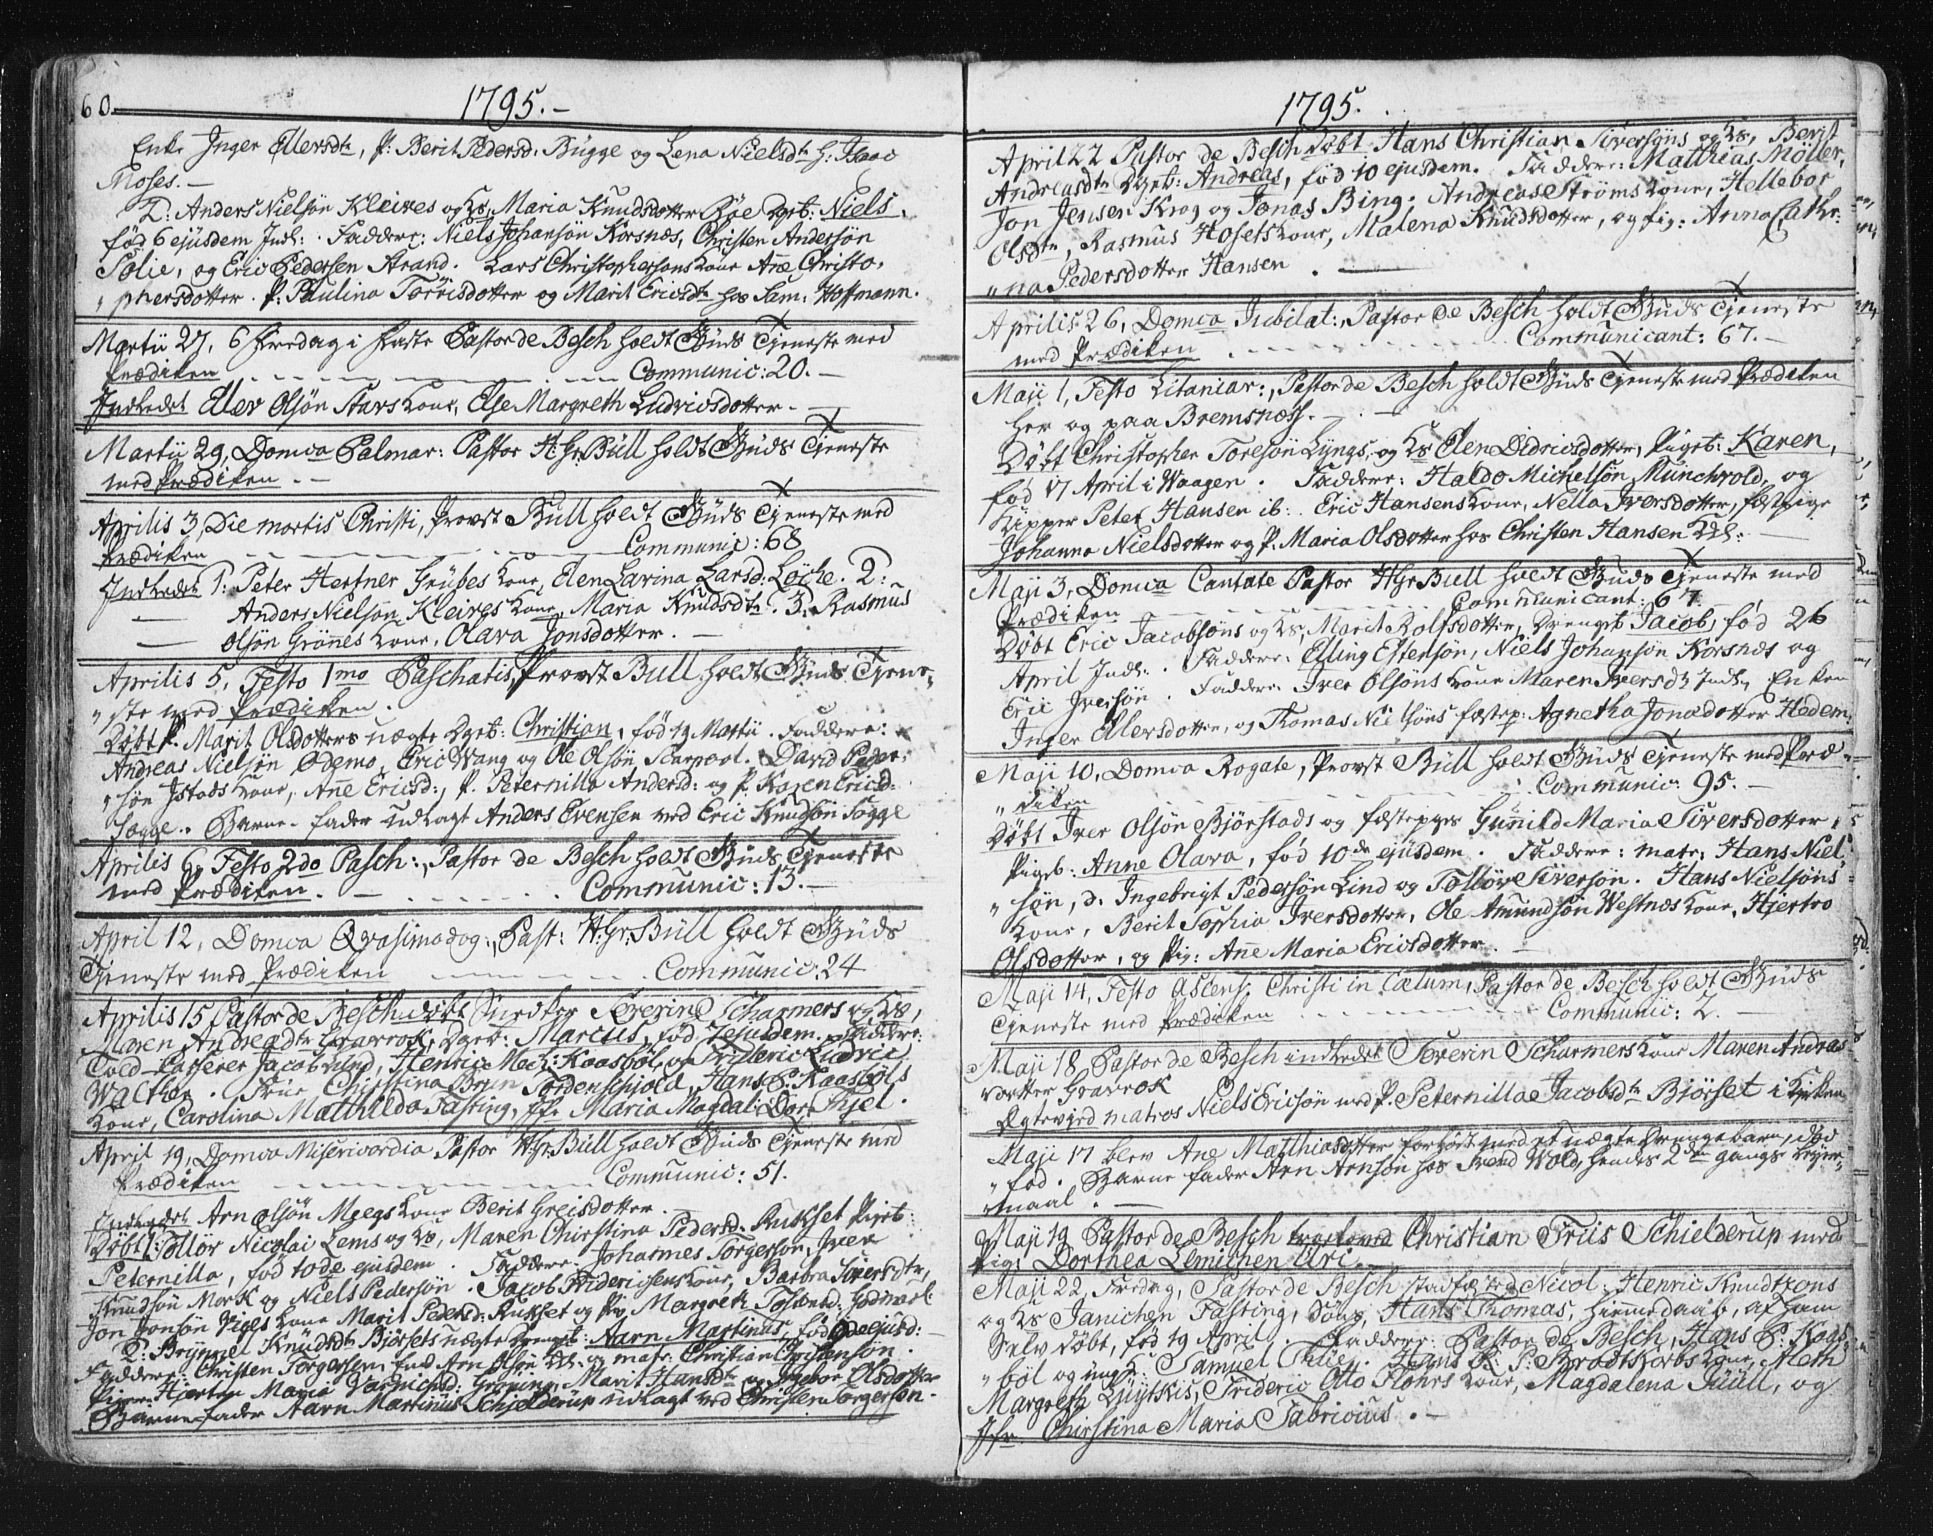 60.
1795.-
Enke Inger Ellersdtr, P: Berit Pedersd: Bugge og Lena Nielsdtr H: Isaac
Moses.-
2: Anders Nielsön Kleives og Ks, Maria Knudsdotter Böe Dgeb: Niels,
född 6 ejusdem Indl: . Faddere: Niels Johansön Korsnæs, Christen Andersön
Folie, og Eric Pedersen Strand. Lars Christophersens Kone Ane Christo,
" phersdotter. P: Paulina Torrisdotter og Marit Ericsdtr hos Sam: Hoffmann.
Martii 27, 6 Fredag i Faste Pastor de Besch holdt Guds Tjeneste med
Prædiken - - - - Communic: 20.-
Indledet Eler Olsön Stavs Kone, Else Margreth Ludvicsdotter.-
Martii 29, Domca Palmar: Pastor H: Gr: Bull holdt Guds Tjeneste
med Prædiken.-
Aprilis 3, Die mortis Christi, Provst Bull holdt Guds Tjeneste med
Prædiken - - - - Communic: 68
Indledet 1: Peter Hertner Grubes Kone, Elen Larina Larsd: Löche. 2:
Anders Nielsön Kleives Kone, Maria Knudsdtr. 3. Rasmus
Olsön Grönes Kone, Olava Jonsdotter.-
Aprilis 5, Festo 1mo Paschatis, Provst Bull holdt Guds Tjene,
" ste med Prædiken.
Döbt P. Marit Olsdotters uægte Dgeb: Christian, fød 19 Martii. Faddere:
Andreas Nielsön Ödemo, Eric Wang og Ole Olsön Scarpool. David Peder,
" sön Istads Kone, Ane Ericsd:, P. Peternilla Andersd: og P. Karen Ericsd:
Fogge. Barne-fader Udlagt Anders Evensen ved Eric Knudsön Fogge
Aprilis 6, Festo 2do Pasch:, Pastor de Besch holdt Guds Tjeneste
med Prædiken. - - - Communic: 13.-
April 12, Domca Qvasimodog:, Past: H: Gr: Bull holdt Guds
Tjeneste med Prædiken - - - Communic: 24
Aprilis 15 Pastor de Besch döbt Snedker Severin Scharmers og Ks,
Maren Andreædtr Gravrok, Dgeb: Marcus, fød 7 ejusdem. Faddere:
Told-Passerer Jacob Lund, Henric Mech: Kaasböl, og Frideric Ludvic
Walther. Frue Christina Brun Tordenschjold, Hans P. Kaasböls
Kone, Carolina Matthilda Fasting, Jfr Maria Magdal: Dor: Thjel.
April 19, Domca Misericordia Pastor H: Gr: Bull holdt Guds Tjeneste med
Prædiken - - - - Communic: 51.
Indledet Arn Olsön Meegs Kone Berit Greisdotter.
Döbt 1: Tollör Nicolai Lems og Ks, Maren Christina Pedersd: Rukset Pigeb:
Peternilla, fød 10de ejusdem. Faddere: Johannes Torgersön, Iver
Knudsön Mork og Niels Pedersön. Jacob Friderichsens Kone, Barbra Iversdtr,
Jon Jonsön Viigs Kone Marit Pedersd: Rukset og Pig Margreth Tostensd: Godviek
2: Brynnel Knudsdtr Björsets uægte Drengeb: Aarn Martinus, fød 9de ejusd:
Faddere: Christen Torgersen, Arn Olsön Kl: og matr: Christian Christensön.
Piger Hjertru Maria Varnichsd: Gröning, Marit Hansdtr og Ingebor Olsdotter
Barnefader Aarn Martinus Schjelderup udlagt ved Christen Torgersön.
1795.
April 22 Pastor de Besch döbt Hans Christian Siversöns og Ks, Berit
Andreasdtr Dgeb: Andreas, fød 10 ejusdem. Faddere: Matthias Möller,
Jon Jensen Krog og Jonas Bing. Andreas Ströms Kone, Hellebor
Olsdtr, Rasmus Hosets Kone, Malena Knudsdotter, og Pig: Anna Cathr:
" na Pedersdotter Hansen.-
Aprilis 26, Domca Jubilat:, Pastor de Besch holdt Guds Tjeneste
med Prædiken - - - Communicant: 67.-
Maji 1, Festo Litaniar:, Pastor de Besch holdt Guds Tjeneste med Prædiken
her og paa Bremsnæs.-
Döbt Christopher Toresön Lyngs, og Ks Elen Didricsdotter, Pigeb: Karen,
fød 17 April i Waagen. Faddere: Haldo Michelsön Munchvold, og
Skipper Peter Hansen ib: Eric Hansens Kone, Nella Iversdotter, fæstpige
Johanna Nielsdotter og P. Maria Olsdotter hos Christen Hansen Kl:-
Maji 3, Domca Cantate Pastor H Gr Bull holdt Guds Tjeneste med
Prædiken - - - Communicant: 67.
Döbt Eric Jacobsöns og Ks, Marit Rolfsdotter, Drengeb Jacob, fød 26
April Indl: . Faddere: Elling Estensön, Niels Johansön Korsnæs og
Eric Iversön. Faddere: Iver Olsöns Kone Maren Iversdtr Indl, Enken
Inger Ellersdotter, og Thomas Nielsöns fæstep: Agnetha Jonædotter Hedem:
Maji 10, Domca Rogate, Provst Bull holdt Guds Tjeneste med Præ-
" diken - - - Communic: 95.-
Döbt Iver Olsön Björstads og fæstepges Gunnild Maria Siversdotter,
Pigeb: Anne Olava, fød 10de ejusdem. Faddere: matr: Hans Niel,
" sön, d: Ingebrigt Pedersön Lind og Tollöv Siversön. Hans Nielsöns
Kone, Berit Sophia Iversdotter, Ole Amundsön Westnæs Kone, Hjertro
Olsdotter, og Pig: Ane Maria Ericsdotter.
Maji 14, Festo Ascens: Christi in Cælum, Pastor de Besch holdt Guds
Tjeneste med Prædiken - - - Communic: 2.-
Maji 18 Pastor de Besch indledet Severin Scharmers Kone Maren Andreæ
dotter Gravrok
Ægtevied matros Niels Ericsön med P. Peternilla Jacobsdtr Björset i Kirken
Maji 17 blev Ane Matthiasdotter forlöst med et uægte Drengebarn, död
" fød. Barne fader Arn Arnsön hos Svend Wold, hendes 2den gangs Leyer-
maal.-
Maji 19 Pastor de Besch trolovet Christian Friis Schielderup med
Pig: Dorthea Lemichen Uri.
Maji 22, Fredag, Pastor de Besch stadfæsted Nicol: Henric Knudtzons
og Ks Janichen Fasting, Sön, Hans Thomas, hiemedaab, af ham
Selv döbt, fød 19 April. Faddere: Pastor de Besch, Hans P. Kaas,
" böl og ungk: Samuel Thue. Hans R. P: Brodtkorbs Kone, Meth
Margreth Luytskis, Frideric Otto Flohrs Kone, Magdalena Juul, og
Jfr. Christina Maria Fabricius.-